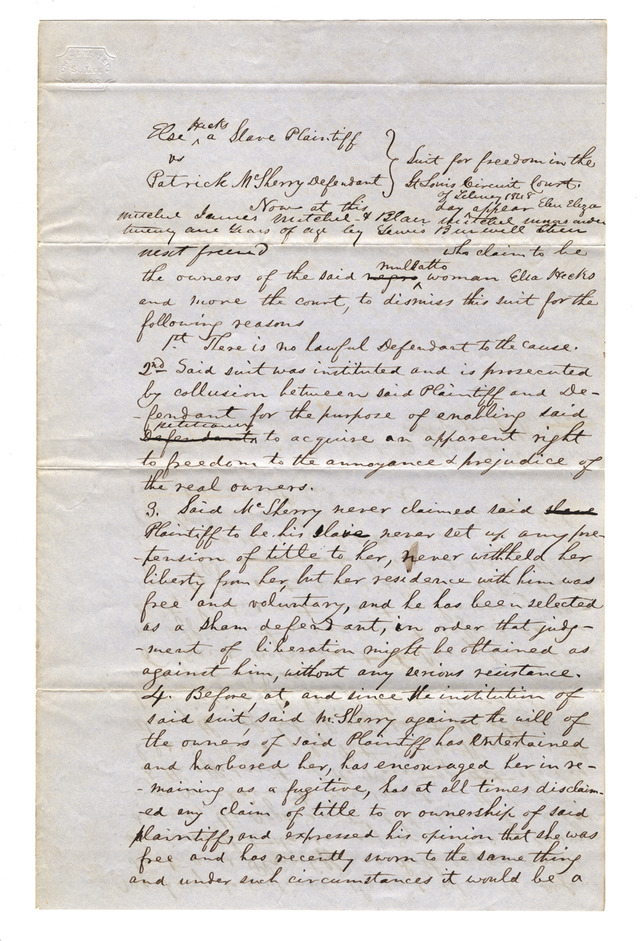 Else Hecks a Slave Plaintiff
vs
Patrick McSherry Defendant
Suit for freedom in the
St Louis Circuit Court.
of 1848
Now at this day appear Ellen Eliza
Mitchel James Mitchel & Blair Mitchel minors under
twenty one years of age by Lewis Burwell their
next friend who claim to be
the owners of the said negro mullatto woman Elsa Hecks
and move the court, to dismiss this suit for the
following reasons
1st There is no lawful Defendant to the cause.
2nd Said suit was instituted and is prosecuted
by collusion between said Plaintiff and De-
-fendant for the purpose of enabling said
Defendant petitioner to acquire an apparent right
to freedom to the annoyance & prejudice of
the real owners.
3. Said McSherry never claimed said slave
Plaintiff to be his slave never set up any pre-
-tension of title to her, never withheld her
liberty from her, but her residence with him was
free and voluntary, and he has been selected
as a sham defendant, in order that judg-
-ment of liberation might be obtained as
against him, without any serious resistance.
4. Before, at, and since the institution of
said suit, said McSherry against the will of
the owners of said Plaintiff has entertained
and harbored her, has encouraged her in re-
-maining as a fugitive, has at all times disclaim-
-ed any claim of title to or ownership of said
plaintiff, and expressed his opinion that she was
free and has recently sworn to the same thing
and under such circumstances it would be a